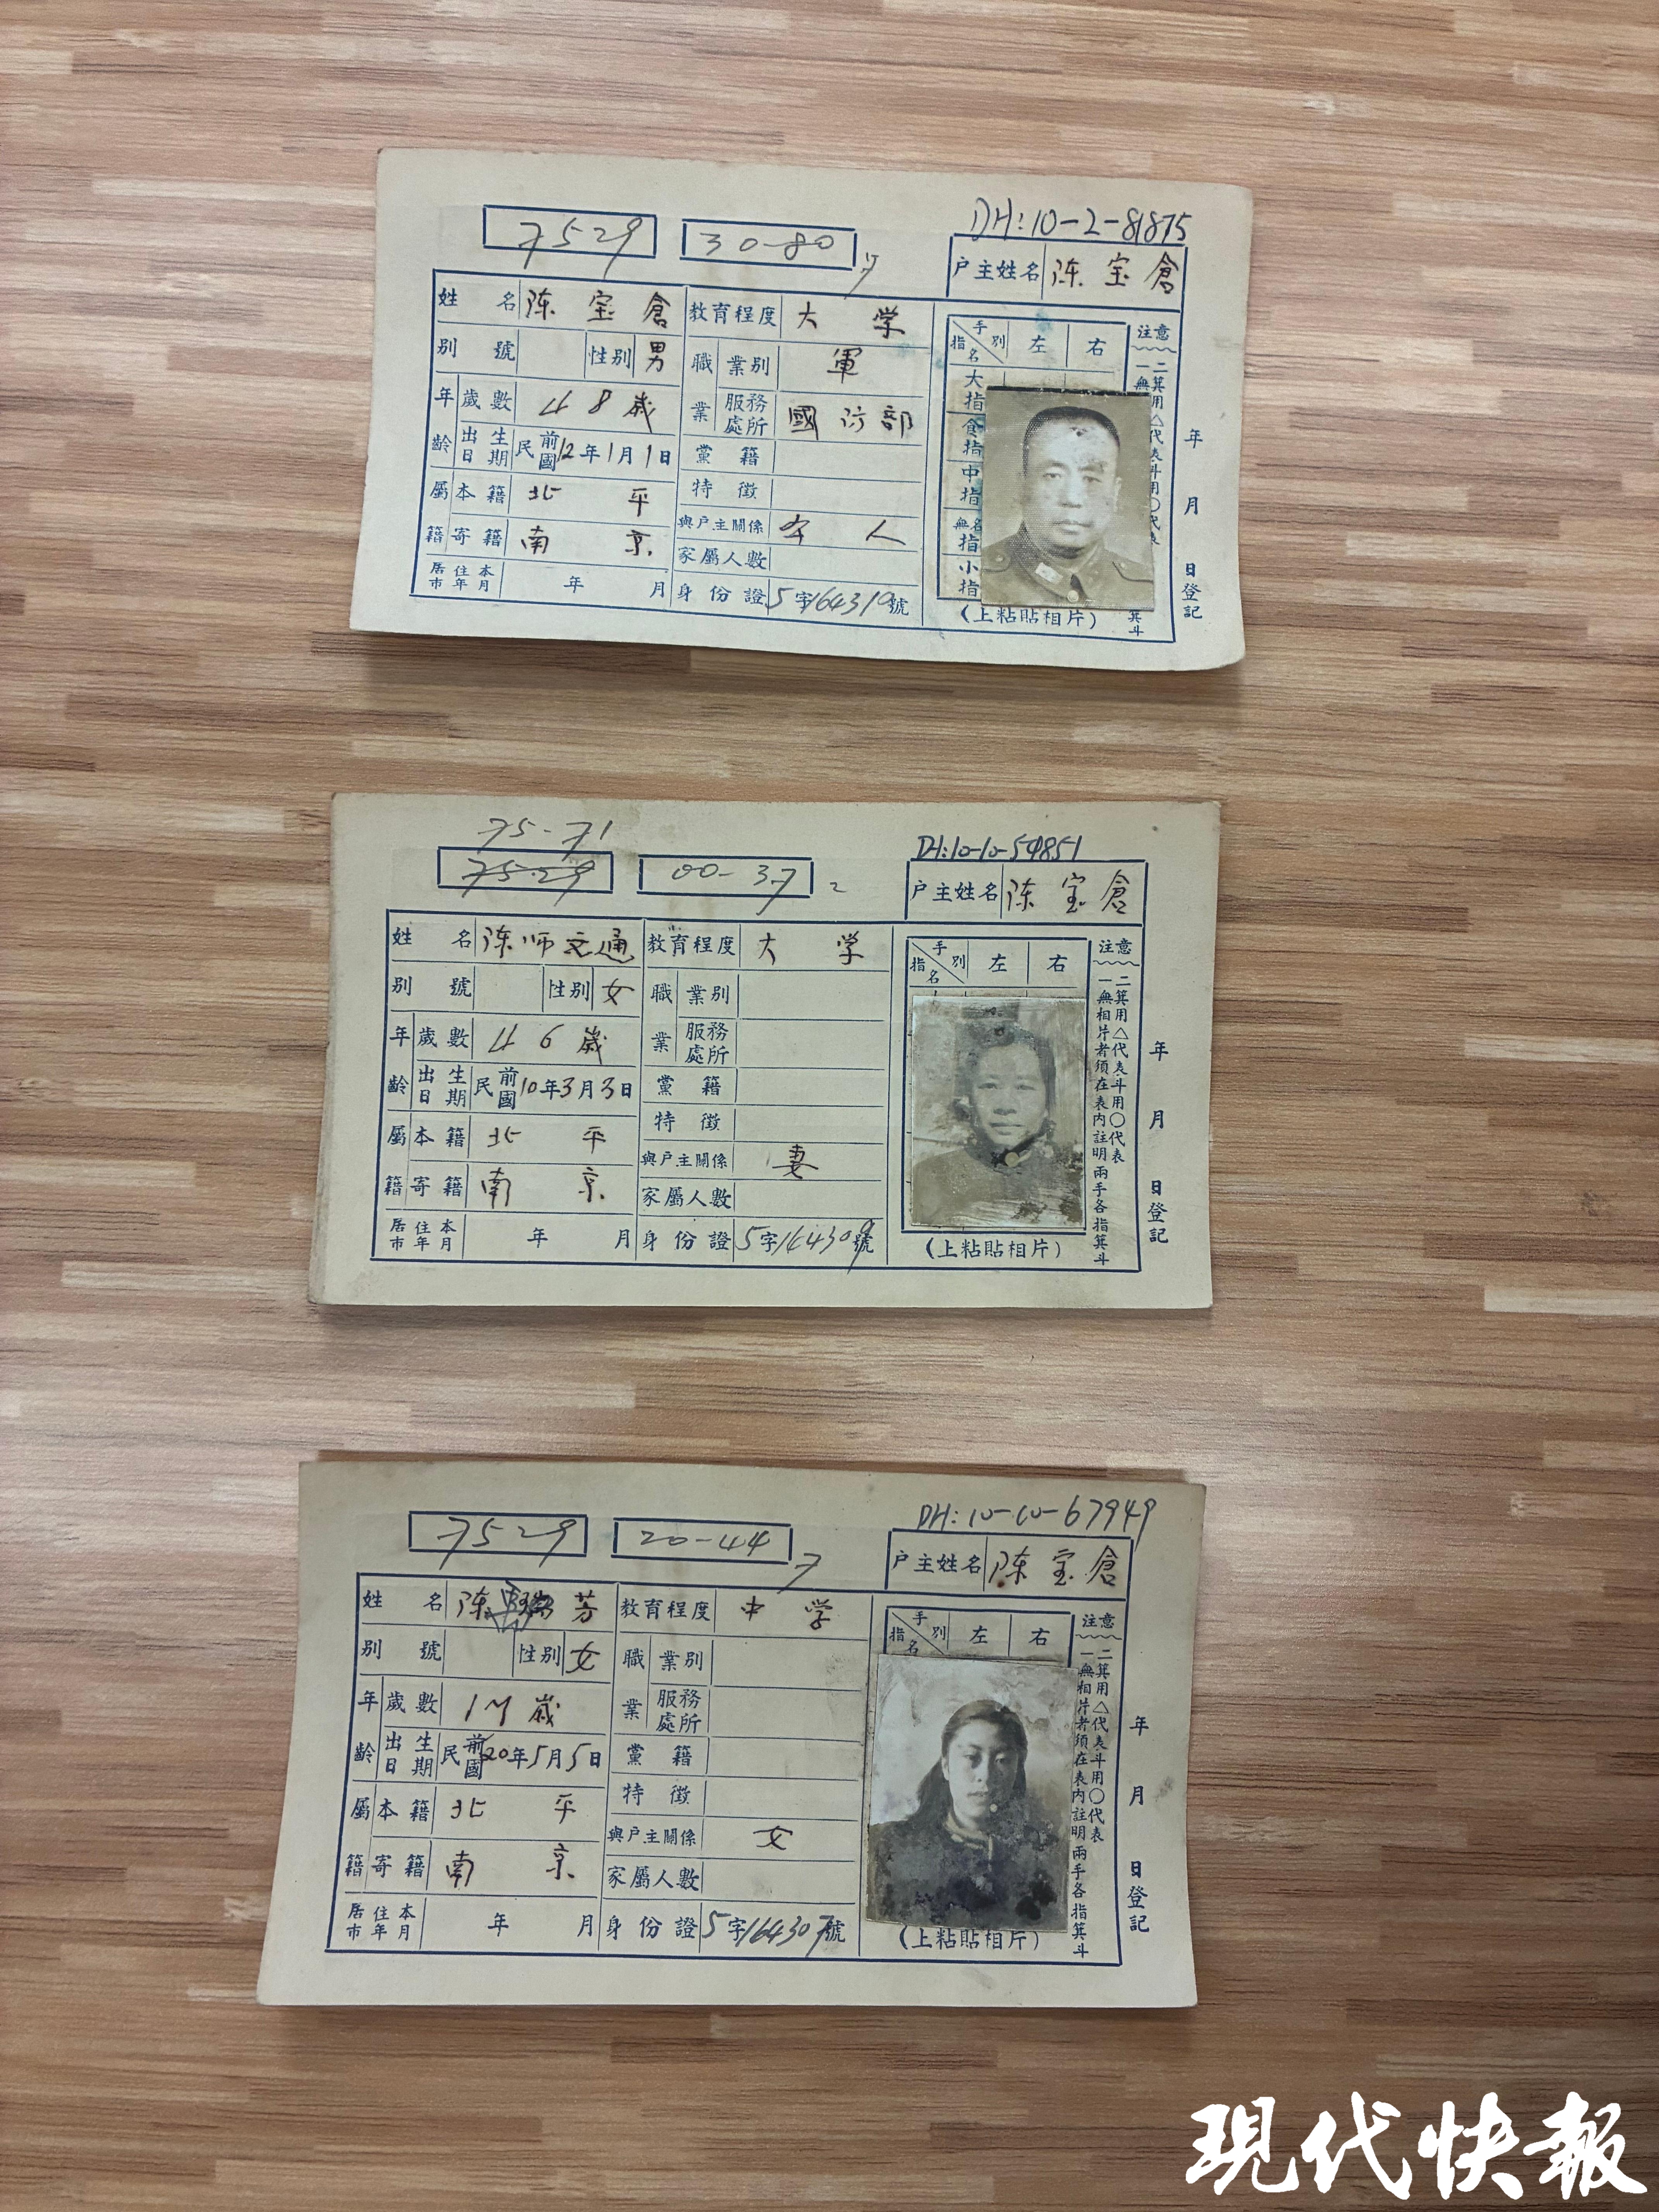 DH:10-2-81875
7529 30-80
户主姓名 陈宝倉
姓名 陈宝倉 教育程度 大学
别號 性别 男 職業 業别 軍
年齡 歲數 48歲 服務處所 國防部
出生日期 民國前12年1月1日 黨籍
屬籍 本籍 北平 特徵
與戶主關係 本人
寄籍 南京 家屬人數
居住本市年月 年 月 身份證 5字164310號
手别 指名 左 右
大指
食指
中指
無名指
小指
(上粘貼相片)
注意
二箕用△代表斗用〇代表
年 月 日登記
75-71
DH:10-10-54851
75-29 00-37 2
户主姓名 陈宝倉
姓名 陈师文通 教育程度 大学
别號 性别 女 職業 業别
年齡 歲數 46歲 服務處所
出生日期 民國前10年3月3日 黨籍
屬籍 本籍 北平 特徵
與戶主關係 妻
寄籍 南京 家屬人數
居住本市年月 年 月 身份證 5字164309號
手别 指名 左 右
(上粘貼相片)
注意
一無相片者須在表內註明兩手各指箕斗
二箕用△代表斗用〇代表
年 月 日登記
DH:10-10-67949
7529 20-44 7
户主姓名 陈宝倉
姓名 陈 芳 教育程度 中学
别號 性别 女 職業 業别
年齡 歲數 歲 服務處所
出生日期 民國前20年5月5日 黨籍
屬籍 本籍 北平 特徵
與戶主關係 女
寄籍 南京 家屬人數
居住本市年月 年 月 身份證 5字164307號
手别 指名 左 右
(上粘貼相片)
注意
一無相片者須在表內註明兩手各指箕斗
二箕用△代表斗用〇代表
年 月 日登記
現代快報